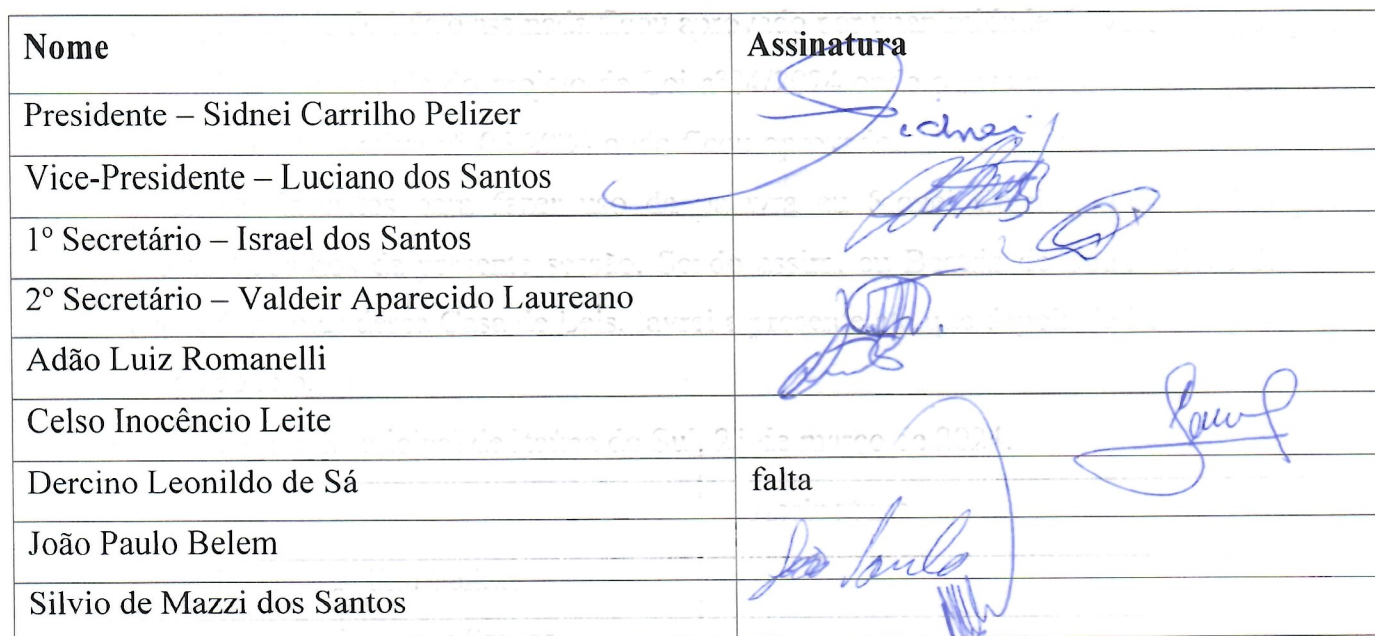 Nome Assinatura
Presidente – Sidnei Carrilho Pelizer Sidnei
Vice-Presidente – Luciano dos Santos
1º Secretário – Israel dos Santos
2º Secretário – Valdeir Aparecido Laureano
Adão Luiz Romanelli
Celso Inocêncio Leite
Dercino Leonildo de Sá falta
João Paulo Belem João Paulo
Silvio de Mazzi dos Santos